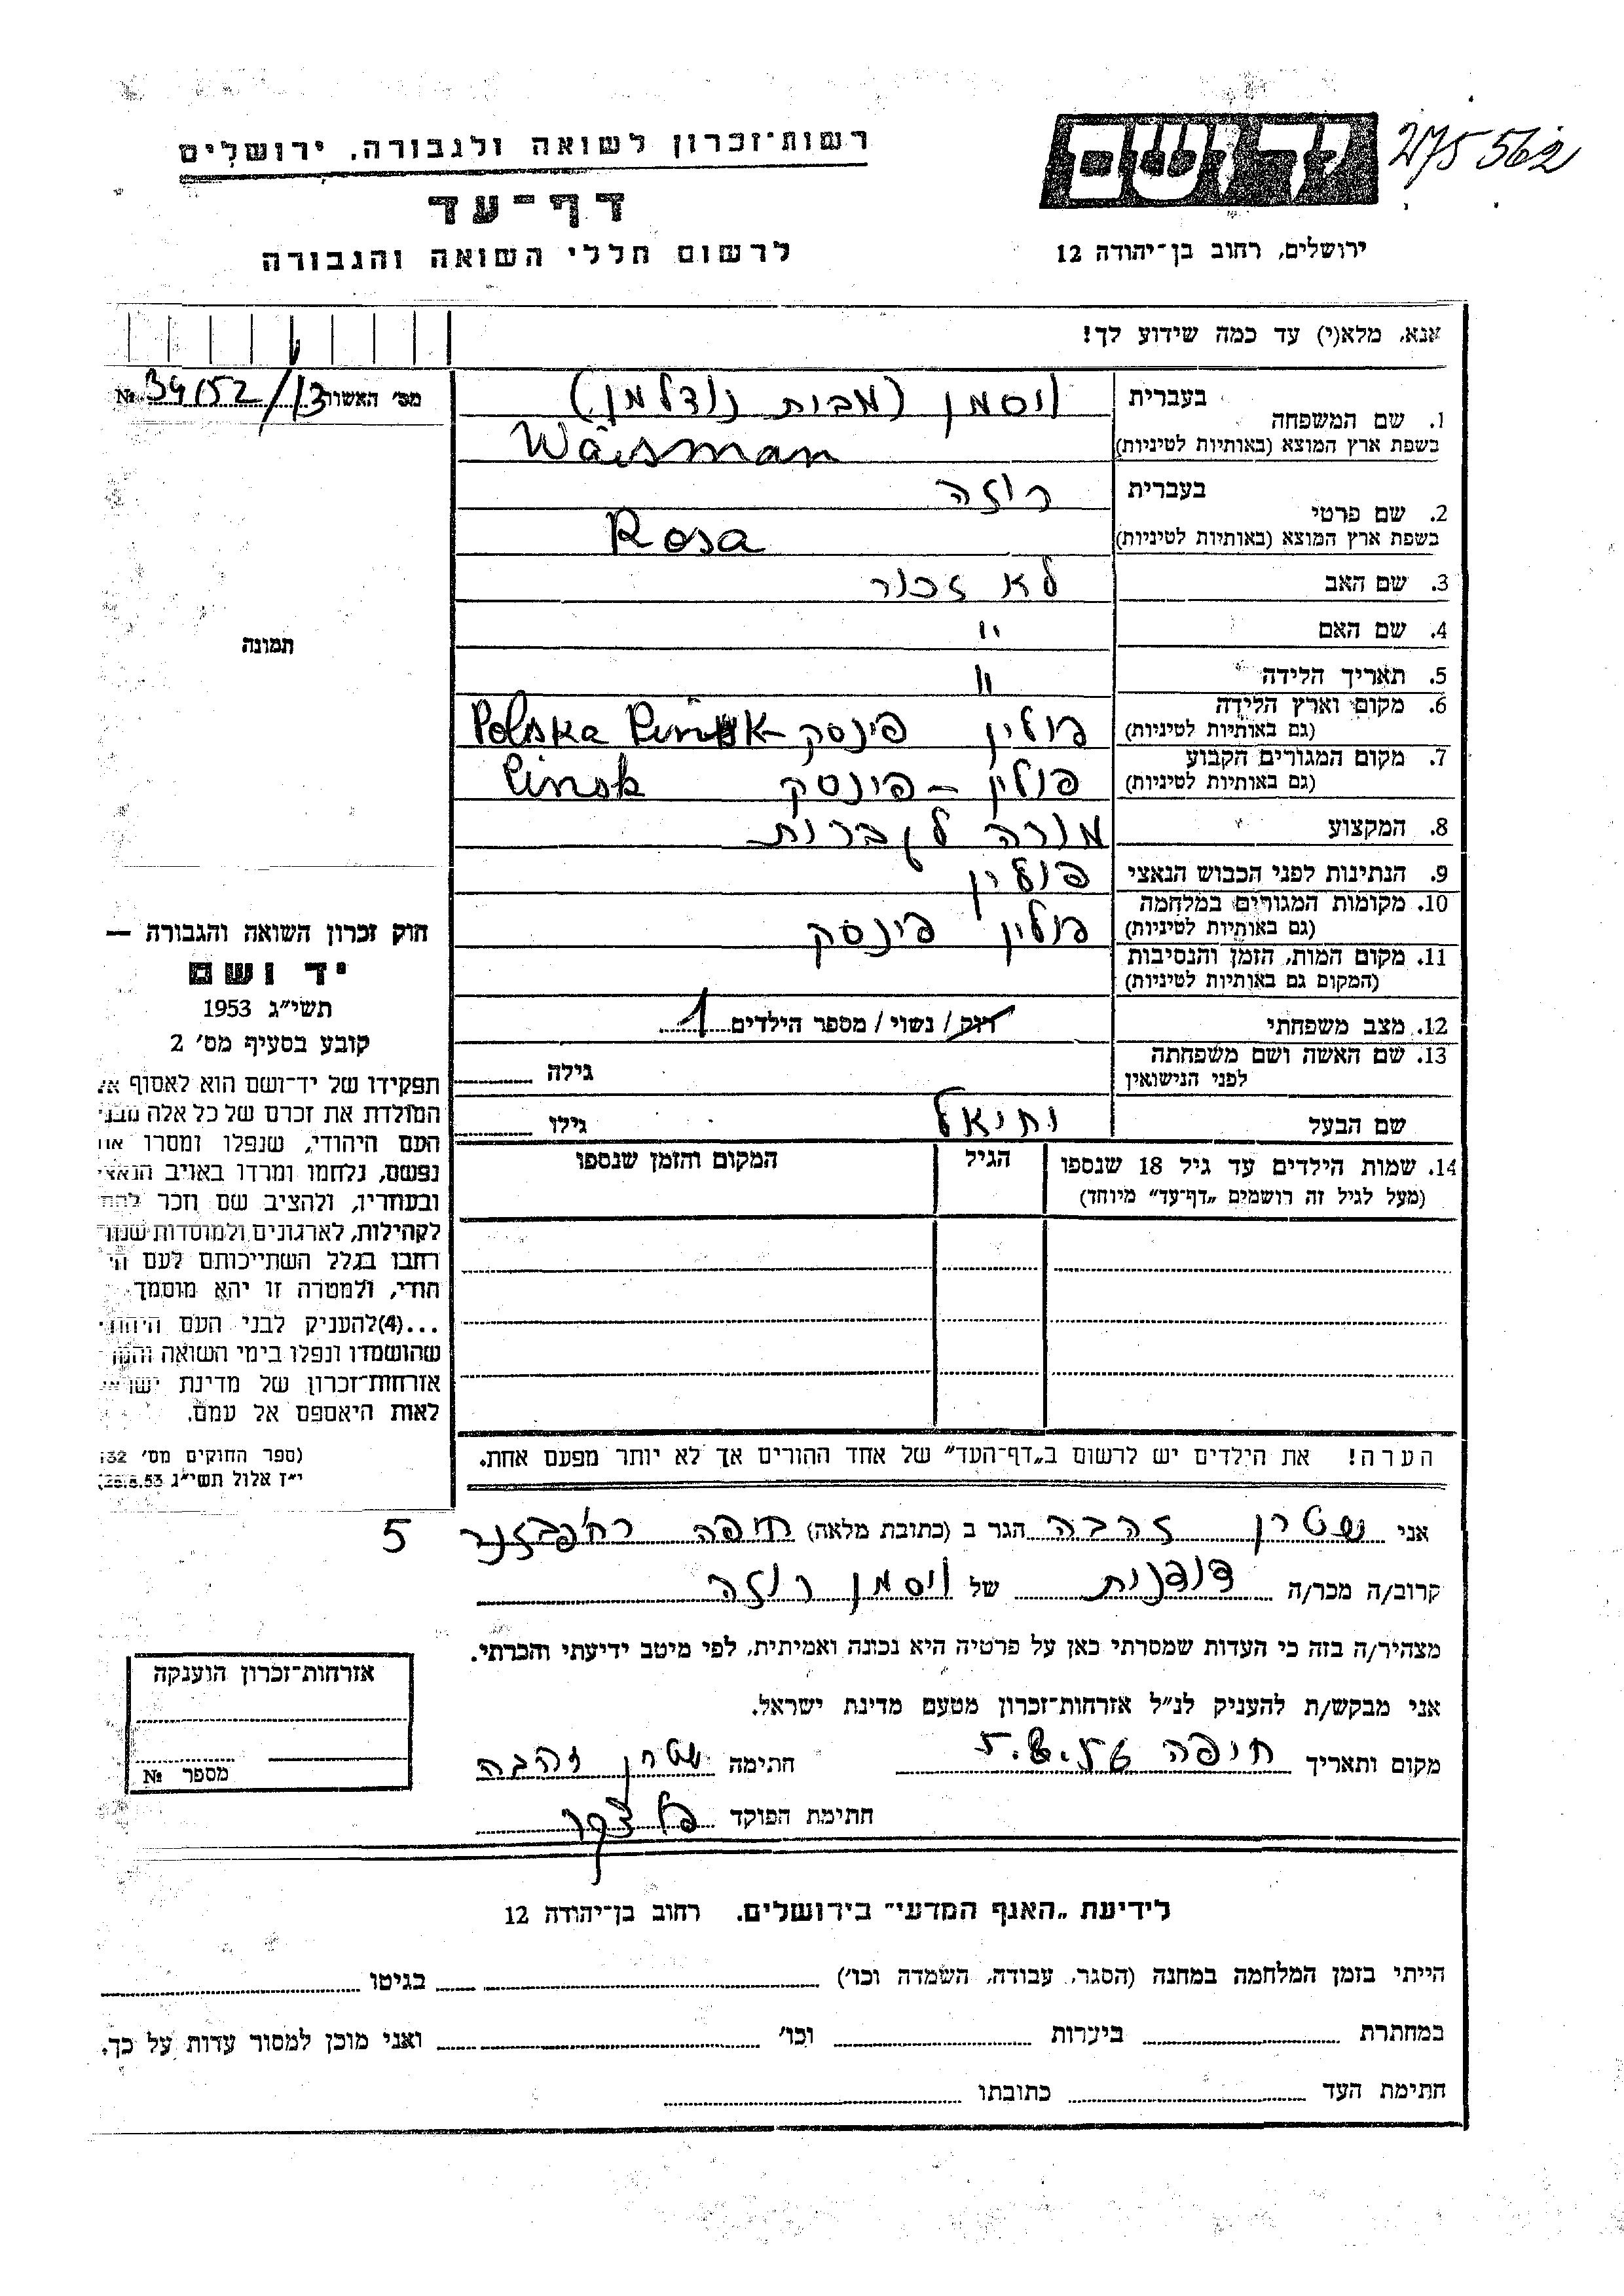 רשות־זכרון לשואה ולגבורה. ירושלים
יד ושם
275562
דף־עד
לרשום חללי השואה והגבורה
ירושלים, רחוב בן־יהודה 12
אנא, מלא(י) עד כמה שידוע לך!
מס׳ האשור № 34152/13
1. שם המשפחה
בעברית
ויסמן (מבית נודלמן)
בשפת ארץ המוצא (באותיות לטיניות)
Waisman
2. שם פרטי
בעברית
רוזה
בשפת ארץ המוצא (באותיות לטיניות)
Rosa
3. שם האב לא זכור
4. שם האם "
5. תאריך הלידה "
6. מקום וארץ הלידה
(גם באותיות לטיניות)
פולין פינסק Polska Pinsk
7. מקום המגורים הקבוע
(גם באותיות לטיניות)
פולין – פינסק Pinsk
8. המקצוע מורה
9. הנתינות לפני הכבוש הנאצי פולין
10. מקומות המגורים במלחמה
(גם באותיות לטיניות)
פולין פינסק
11. מקום המות, הזמן והנסיבות
(המקום גם באותיות לטיניות)
12. מצב משפחתי רוק / נשוי / מספר הילדים 1
13. שם האשה ושם משפחתה
לפני הנישואין
גילה
שם הבעל יחיאל גילו
14. שמות הילדים עד גיל 18 שנספו
(מעל לגיל זה רושמים „דף־עד״ מיוחד)
הגיל
המקום והזמן שנספו
הערה! את הילדים יש לרשום ב„דף־העד״ של אחד ההורים אך לא יותר מפעם אחת.
תמונה
חוק זכרון השואה והגבורה —
יד ושם
תשי״ג 1953
קובע בסעיף מס׳ 2
תפקידו של יד־ושם הוא לאסוף א
המולדת את זכרם של כל אלה מבני
העם היהודי, שנפלו ומסרו את
נפשם, נלחמו ומרדו באויב הנאצי
ובעוזריו, ולהציב שם וזכר להם
לקהילות, לארגונים ולמוסדות שנח־
רחבו בגלל השתייכותם לעם הי
הודי, ולמטרה זו יהא מוסמך
...(4) להעניק לבני העם היהודי
שהושמדו ונפלו בימי השואה והמר
אזרחות־זכרון של מדינת ישראל
לאות היאספם אל עמם.
(ספר החוקים מס׳ 132
י״ז אלול תשי״ג 28.8.53)
אני שטרן זהבה הגר ב (כתובת מלאה) חיפה רח׳ פבזנר 5
קרוב/ה מכר/ה דודנית של ויסמן רוזה
מצהיר/ה בזה כי העדות שמסרתי כאן על פרטיה היא נכונה ואמיתית, לפי מיטב ידיעתי והכרתי.
אני מבקש/ת להעניק לנ״ל אזרחות־זכרון מטעם מדינת ישראל.
מקום ותאריך חיפה 5.8.56 חתימה שטרן זהבה
חתימת הפוקד
אזרחות־זכרון הוענקה
מספר №
לידיעת „האגף המדעי״ בירושלים. רחוב בן־יהודה 12
הייתי בזמן המלחמה במחנה (הסגר, עבודה, השמדה וכו׳) בגיטו
במחתרת ביערות וכו׳ ואני מוכן למסור עדות על כך.
חתימת העד כתובתו